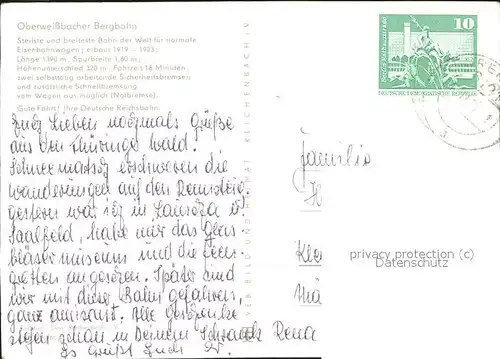 Oberweißbacher Bergbahn
Steilste und breiteste Bahn der Welt für normale
Eisenbahnwagen; erbaut 1919 - 1923;
Länge 1390 m, Spurbreite 1,80 m;
Höhenunterschied 320 m; Fahrzeit 18 Minuten,
zwei selbsttätig arbeitende Sicherheitsbremsen
und zusätzliche Schnellbremsung
vom Wagen aus möglich (Notbremse).
Gute Fahrt! Ihre Deutsche Reichsbahn.
10
Berlin, Rathausstraße
DEUTSCHE DEMOKRATISCHE REPUBLIK
VEB BILD UND HEIMAT REICHENBACH I. V.
Euch Lieben nochmals Grüße
aus dem Thüringer Wald.
Schneematsch erschweren die
Wanderungen auf dem Rennsteig.
Gestern war ich in Lauscha u.
Saalfeld, habe mir das Glas-
bläsermuseum und die Feen-
grotten angesehen. Später sind
wir mit dieser Bahn gefahren,
ganz amüsant. Alle
schon in Deinem Schrank
Es grüßt Euch
Familie
H
Kle
privacy protection (c)
Datenschutz